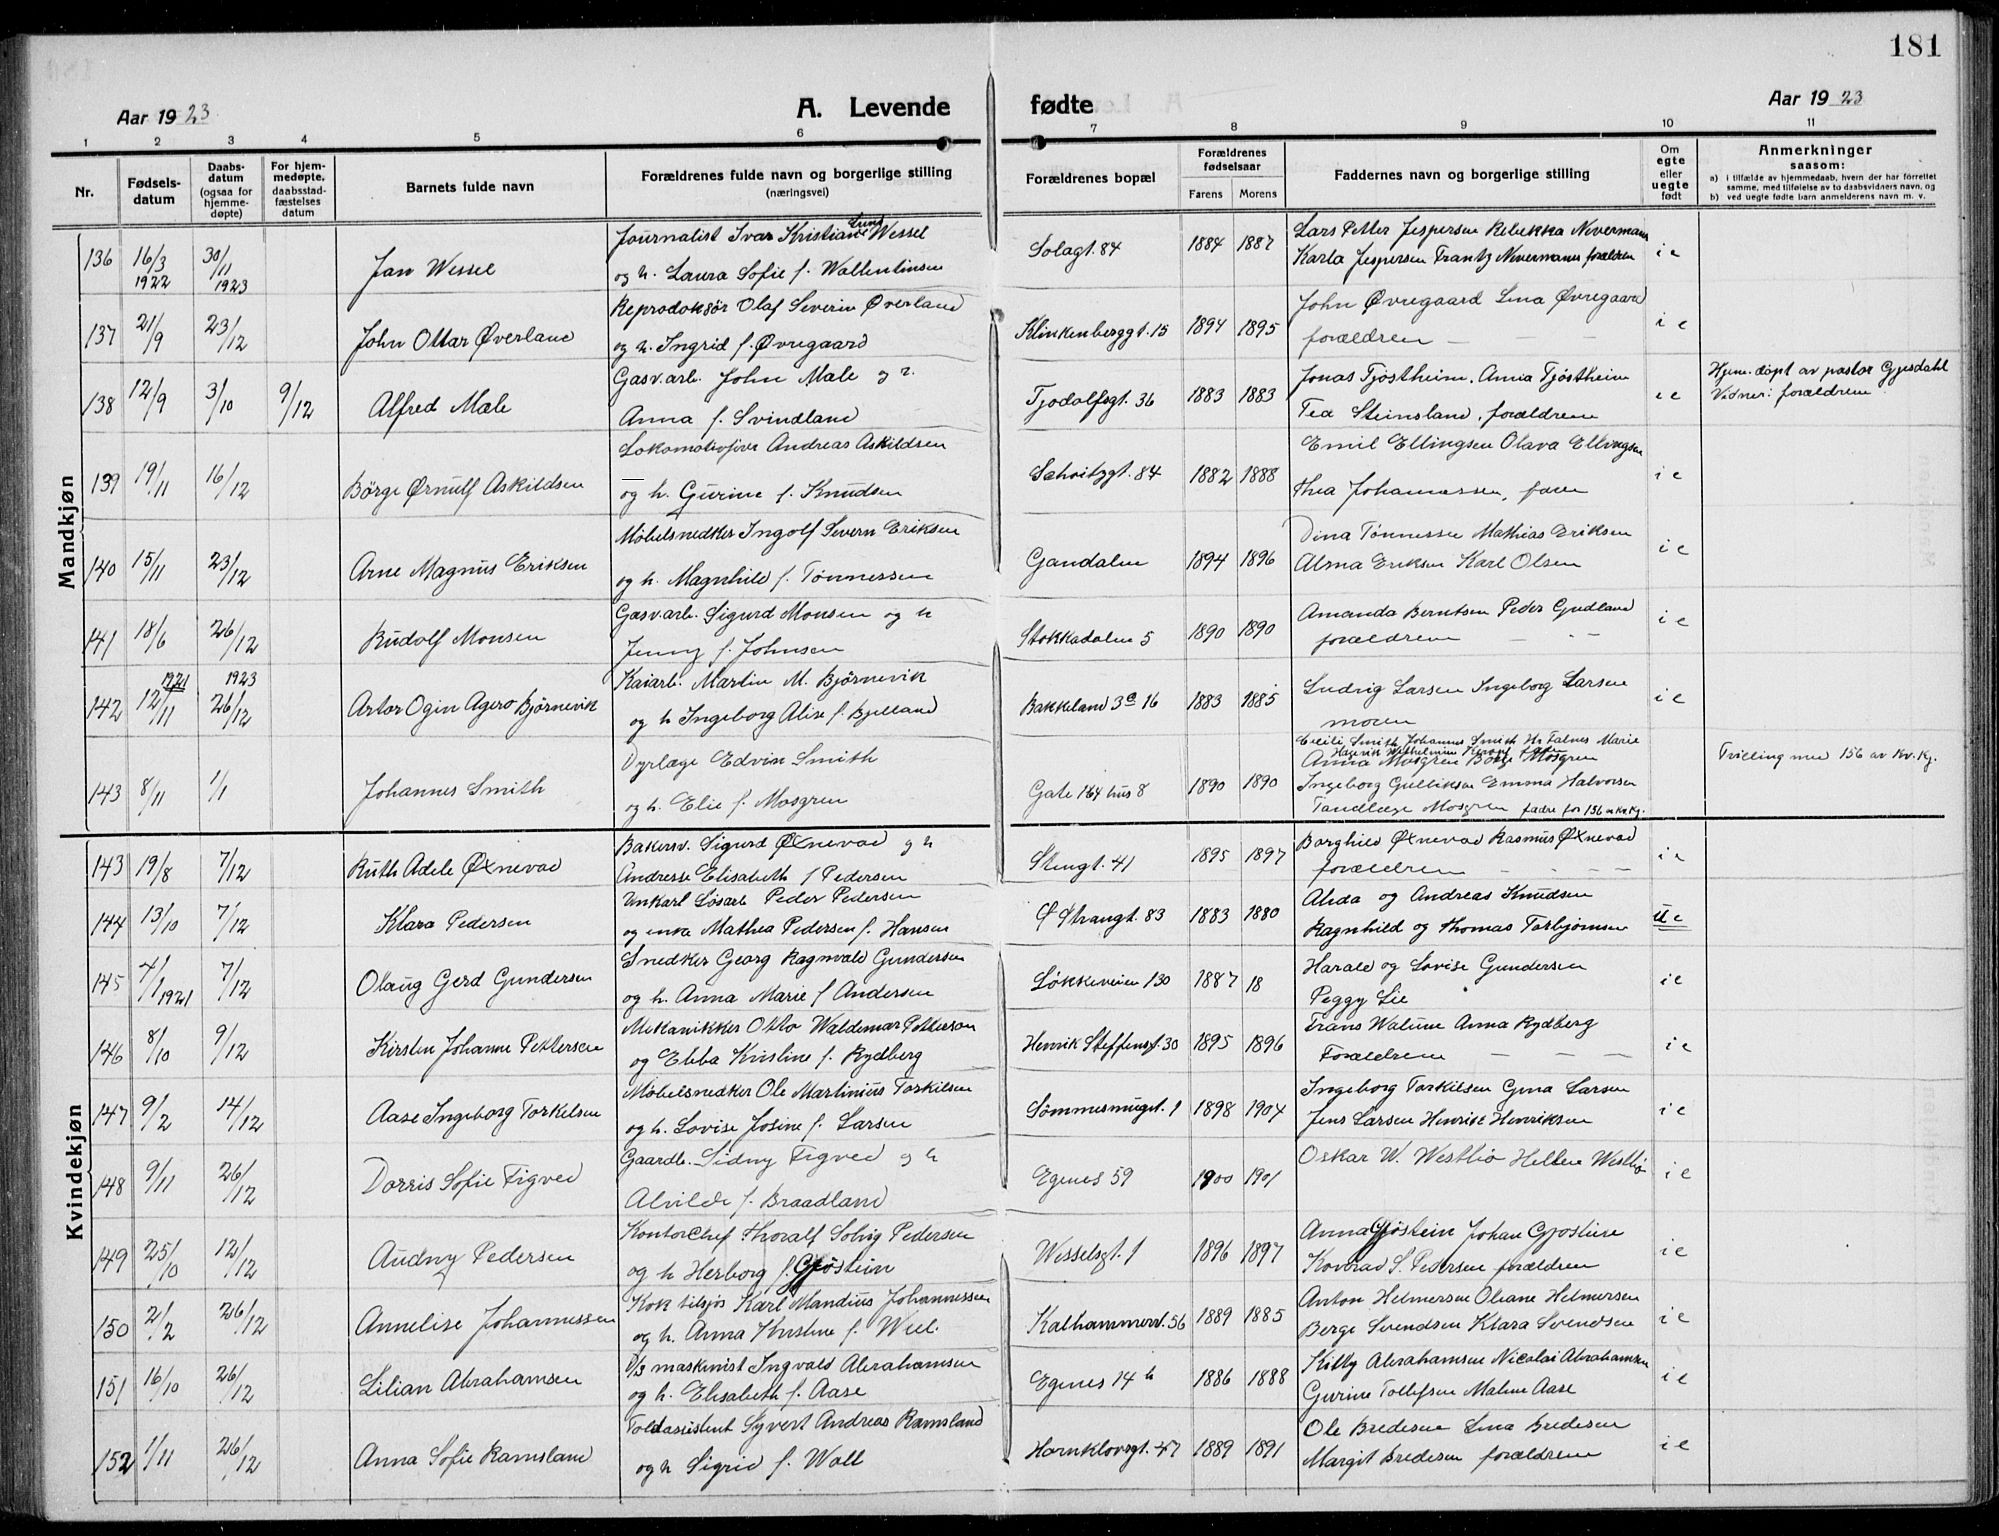 181
Aar 1923
A. Levende fødte
Aar 1923
1 2 3 4 5 6 7 8 9 10 11
Nr.
Fødsels-
datum
Daabs-
datum
(ogsaa for
hjemme-
døpte)
For hjem-
medøpte,
daabsstad-
fæstelses
datum
Barnets fulde navn
Forældrenes fulde navn og borgerlige stilling
(næringsvei)
Forældrenes bopæl
Forældrenes
fødselsaar
Farens Morens
Faddernes navn og borgerlige stilling
Om
egte
eller
uegte
født
Anmerkninger
saasom:
a) i tilfælde av hjemmedaab, hvem der har forrettet
samme, med tilføielse av to daabsvidners navn, og
b) ved uegte fødte barn anmelderens navn m. v.
Mandkjøn
136 16/3 1922 30/11 1923 Jan Wessel
Journalist Ivar Kristian Lund Wessel
og h. Laura Sofie f. Wallentinsen
Solagt. 84 1884 1887
Lars Petter Jespersen Rebekka Nevermann
Karla Jespersen Frantz Nevermanns forældren i e
137 21/9 23/12 John Ottar Øverland
Reprodoksør Olaf Severin Øverland
og h. Ingrid f. Øvregaard
Klinkenberggt. 15 1894 1895
John Øvregaard Lina Øvregaard
forældren i e
138 12/9 3/10 9/12 Alfred Male
Gasv.arb. John Male og h.
Anna f. Svindland
Tjodolfsgt. 36 1883 1883
Jonas Tjøstheim, Anna Tjøstheim
Tea Steinsland, forældrene i e
Hjem. døpt av pastor Gjesdahl
Vidner: forældrene
139 19/11 16/12 Börge Ørnulf Askildsen
Lokomotivfører Andreas Askildsen
og h. Gurine f. Knudsen
Schvitzgt. 84 1882 1888
Emil Ellingsen Olava Ellingsen
Thea Johannessen, faren i e
140 15/11 23/12 Arne Magnus Eriksen
Møbelsnedker Ingolf Severn Eriksen
og h. Magnhild f. Tønnessen
Gandalen 1894 1896
Dina Tønnessen Mathias Eriksen
Alma Eriksen Karl Olsen i e
141 18/6 26/12 Rudolf Monsen
Gasv.arb. Sigurd Monsen og h
Jenny f. Johnsen
Stokkadalen 5 1890 1890
Amanda Berntsen Peder Gudland
forældrene i e
142 12/11 1921 26/12 1923 Artor Ogin Agero Bjørnevik
Kaiarb. Martin M. Bjørnevik
og h Ingeborg Alise f. Bjelland
Bakkeland 3c 16 1883 1885
Ludvig Larsen Ingeborg Larsen
moren i e
143 8/11 1/1 Johannes Smith
Dyrlæge Edvin Smith
og h. Elie f. Mosgren
Gate 164 hus 8 1890 1890
Cecili Smith Johannes Smith Falnes Marie
Anna Mosgren Borge Mosgren
Ingeborg Gulliksen Emma Halvorsen
Tandlæge Mosgren fadre for 156 a kv.kj.
Tvilling med 156 av kv. kj.
Kvindekjøn
143 19/8 7/12 Ruth Adele Øxnevad
Bakersv. Sigurd Øxnevad og h
Andresse Elisabeth f Pedersen
Stengt. 41 1895 1897
Borghild Øxnevad Rasmus Øxnevad
forældren i e
144 13/10 7/12 Klara Pedersen
Unkarl Løsarb Peder Pedersen
og enke Mathea Pedersen f. Hansen
Ø Strangt. 83 1883 1880
Alida og Andreas Knudsen
Ragnhild og Thomas Torbjørnsen u e
145 4/1 1921 7/12 Olaug Gerd Gundersen
Snedker Georg Ragnvald Gundersen
og h. Anna Marie f Andersen
Løkkeveien 130 1887 18
Harald og Lovise Gundersen
Peggy Lie i e
146 8/10 9/12 Kirsten Johanne Pettersen
Mekanikker Otto Waldemar Petterson
og Ebba Kristine f. Rydberg
Henrik Steffensgt. 30 1895 1896
Frans Walum Anna Rydberg
Forældrene i e
147 9/2 14/12 Aase Ingeborg Torkelsen
Møbelsnedker Ole Martinius Torkilsen
og h. Lovise Josine f. Larsen
Sømmesmuget. 1 1898 1904
Ingeborg Torkilsen Gina Larsen
Jens Larsen Henrik Henriksen i e
148 9/11 26/12 Dorris Sofie Figved
Gaardb. Sidny Figved og h
Alvilde f. Braadland
Egenes 59 1900 1901
Oskar W. Westbø Helene Westbø i e
149 25/10 12/12 Audny Pedersen
Kontorchef Thoralf Solvig Pedersen
og h Herborg f. Gjøstein
Wesselsgt. 1 1896 1897
Anna Gjøstein Johan Gjøstein
Konrad S. Pedersen forældren i e
150 2/2 26/12 Annelise Johannessen
Kok tilsjøs Karl Mandius Johannessen
og h. Anna Kristine f. Weel.
Kalhammerv. 56 1889 1885
Anton Helmersen Oliane Helmersen
Berge Svendsen Klara Svendsen i e
151 16/10 26/12 Lilian Abrahamsen
D/S maskinist Ingvald Abrahamsen
og h. Elisabeth f. Aase
Egenes 14 b 1886 1888
Kitty Abrahamsen Nicolai Abrahamsen
Gurine Tollefsen Malene Aase i e
152 1/11 26/12 Anna Sofie Ramsland
Toldassistent Syvert Andreas Ramsland
og h Sigrid f. Wall
Harnklovsgt. 47 1889 1891
Ole Bredesen Lina Bredesen
Margit Bredesen forældrene i e